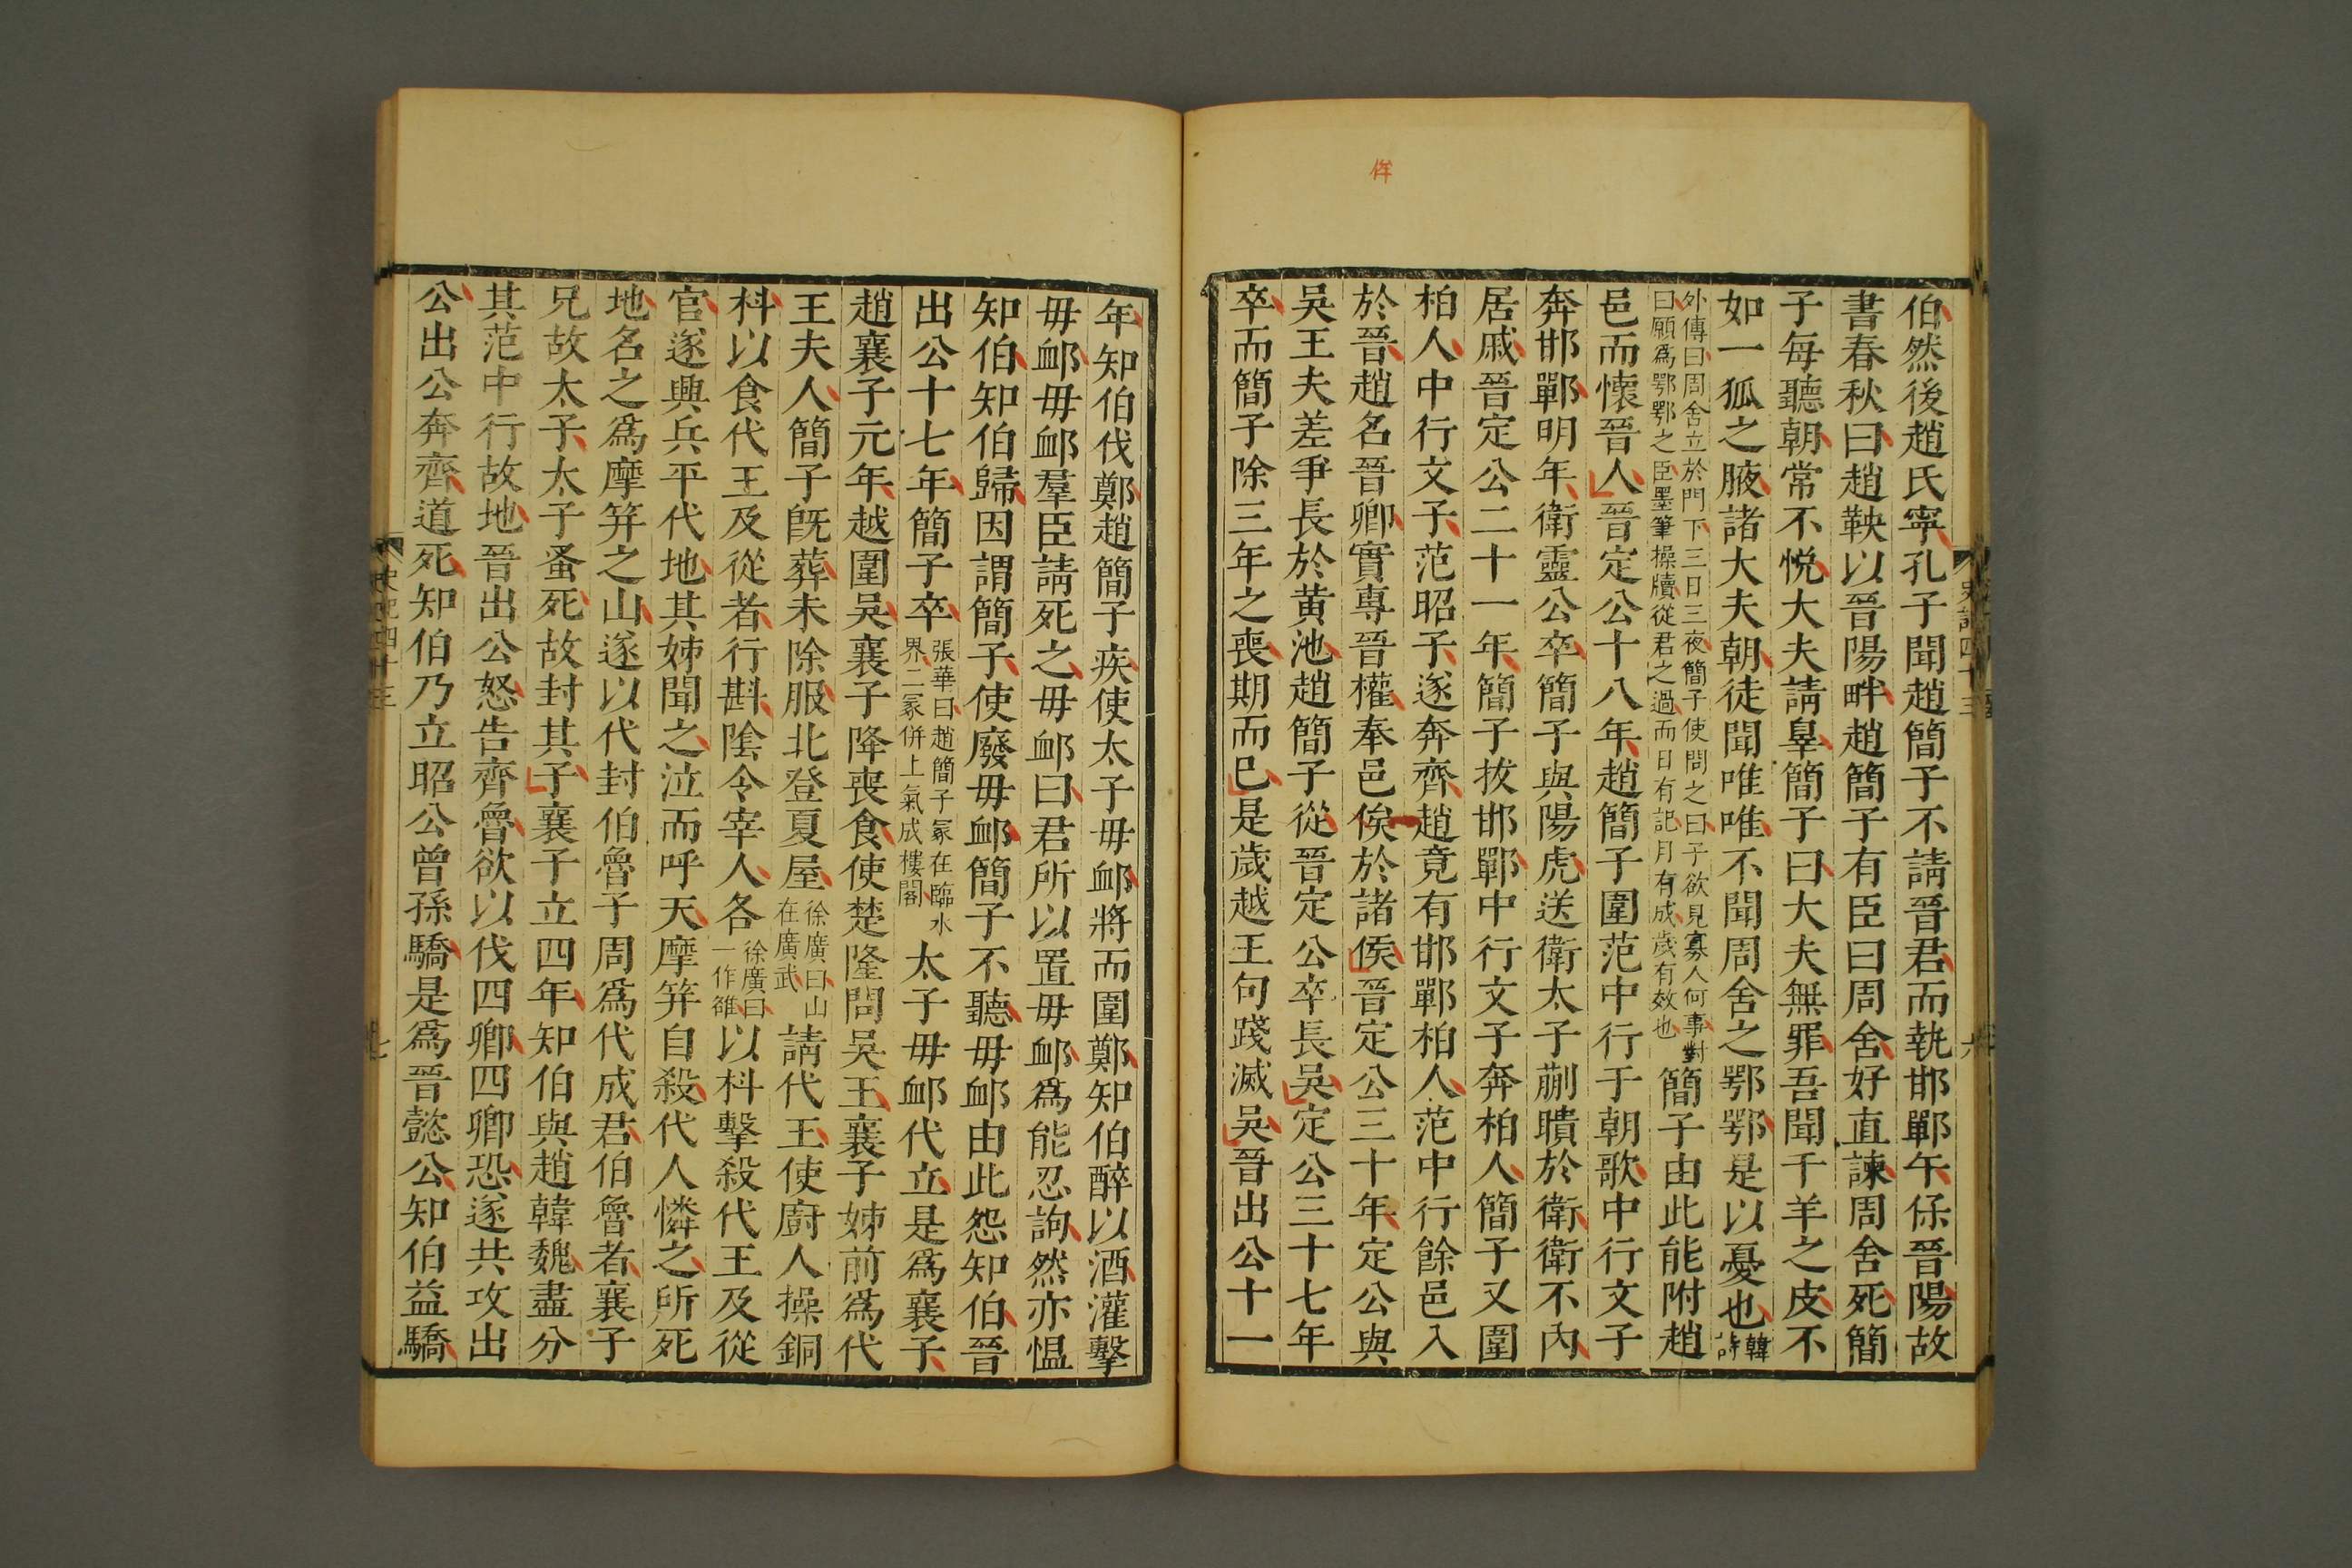 侔
伯然後趙氏寧孔子聞趙簡子不請晉君而執邯鄲午保晉陽故
書春秋曰趙鞅以晉陽畔趙簡子有臣曰周舍好直諫周舍死簡
子每聽朝常不悅大夫請辠簡子曰大夫無罪吾聞千羊之皮不
如一狐之腋諸大夫朝徒聞唯唯不聞周舍之鄂鄂是以憂也韓詩
外傳曰周舍立於門下三日三夜簡子使問之曰子欲見寡人何事對
曰願爲鄂鄂之臣墨筆操牘從君之過而日有記月有成歲有效也
簡子由此能附趙
邑而懷晉人晉定公十八年趙簡子圍范中行于朝歌中行文子
奔邯鄲明年衛靈公卒簡子與陽虎送衛太子蒯聵於衛衛不內
居戚晉定公二十一年簡子拔邯鄲中行文子奔柏人簡子又圍
柏人中行文子范昭子遂奔齊趙竟有邯鄲柏人范中行餘邑入
於晉趙名晉卿實專晉權奉邑侯於諸侯晉定公三十年定公與
吳王夫差爭長於黃池趙簡子從晉定公卒長吳定公三十七年
卒而簡子除三年之喪期而已是歲越王句踐滅吳晉出公十一
史記四十三
六
年知伯伐鄭趙簡子疾使太子毋卹將而圍鄭知伯醉以酒灌擊
毋卹毋卹羣臣請死之毋卹曰君所以置毋卹爲能忍訽然亦慍
知伯知伯歸因謂簡子使廢毋卹簡子不聽毋卹由此怨知伯晉
出公十七年簡子卒
張華曰趙簡子冢在臨水
界二冢併上氣成樓閣
太子毋卹代立是爲襄子
趙襄子元年越圍吳襄子降喪食使楚隆問吳王襄子姊前爲代
王夫人簡子既葬未除服北登夏屋
徐廣曰山
在廣武
請代王使廚人操銅
枓以食代王及從者行斟陰令宰人各
徐廣曰
一作雒
以枓擊殺代王及從
官遂興兵平代地其姊聞之泣而呼天摩笄自殺代人憐之所死
地名之爲摩笄之山遂以代封伯魯子周爲代成君伯魯者襄子
兄故太子太子蚤死故封其子襄子立四年知伯與趙韓魏盡分
其范中行故地晉出公怒告齊魯欲以伐四卿四卿恐遂共攻出
公出公奔齊道死知伯乃立昭公曾孫驕是爲晉懿公知伯益驕
史記四十三
七